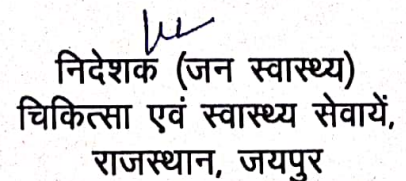 निदेशक (जन स्वास्थ्य)
चिकित्सा एवं स्वास्थ्य सेवायें,
राजस्थान, जयपुर